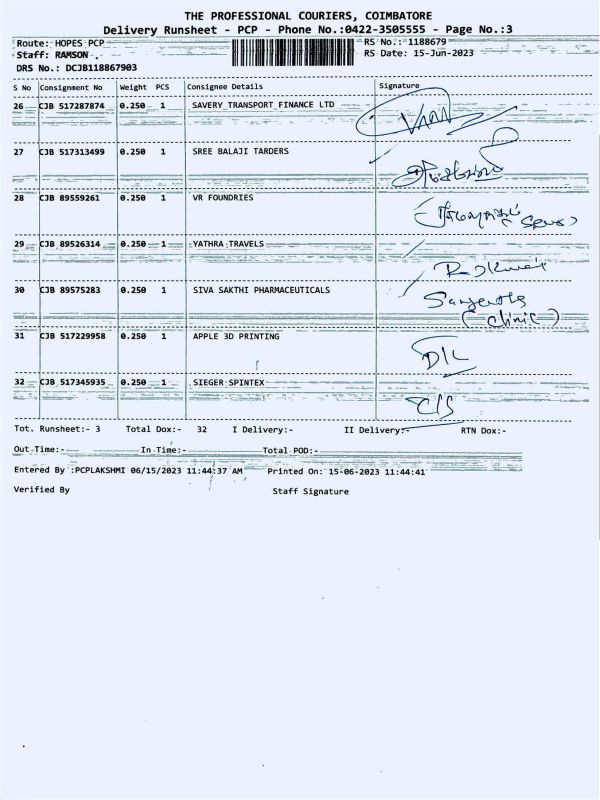 THE PROFESSIONAL COURIERS, COIMBATORE
Delivery Runsheet - PCP - Phone No.:0422-3505555 - Page No.:3
Route: HOPES PCP RS No.: 1188679
Staff: RAMSON RS Date: 15-Jun-2023
DRS No.: DCJB118867903
S No Consignment No Weight PCS Consignee Details Signature
26 CJB 517287874 0.250 1 SAVERY TRANSPORT FINANCE LTD
27 CJB 517313499 0.250 1 SREE BALAJI TARDERS
28 CJB 89559261 0.250 1 VR FOUNDRIES
29 CJB 89526314 0.250 1 YATHRA TRAVELS
30 CJB 89575283 0.250 1 SIVA SAKTHI PHARMACEUTICALS
(Clinic)
31 CJB 517229958 0.250 1 APPLE 3D PRINTING
32 CJB 517345935 0.250 1 SIEGER SPINTEX
Tot. Runsheet:- 3 Total Dox:- 32 I Delivery:- II Delivery:- RTN Dox:-
Out Time:- In Time:- Total POD:-
Entered By :PCPLAKSHMI 06/15/2023 11:44:37 AM Printed On: 15-06-2023 11:44:41
Verified By Staff Signature